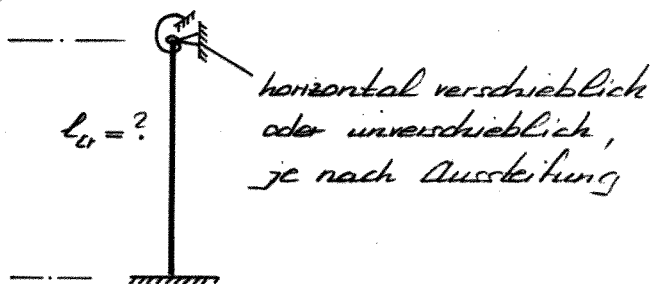 horizontal verschieblich
l_cr = ? oder unverschieblich,
je nach Aussteifung